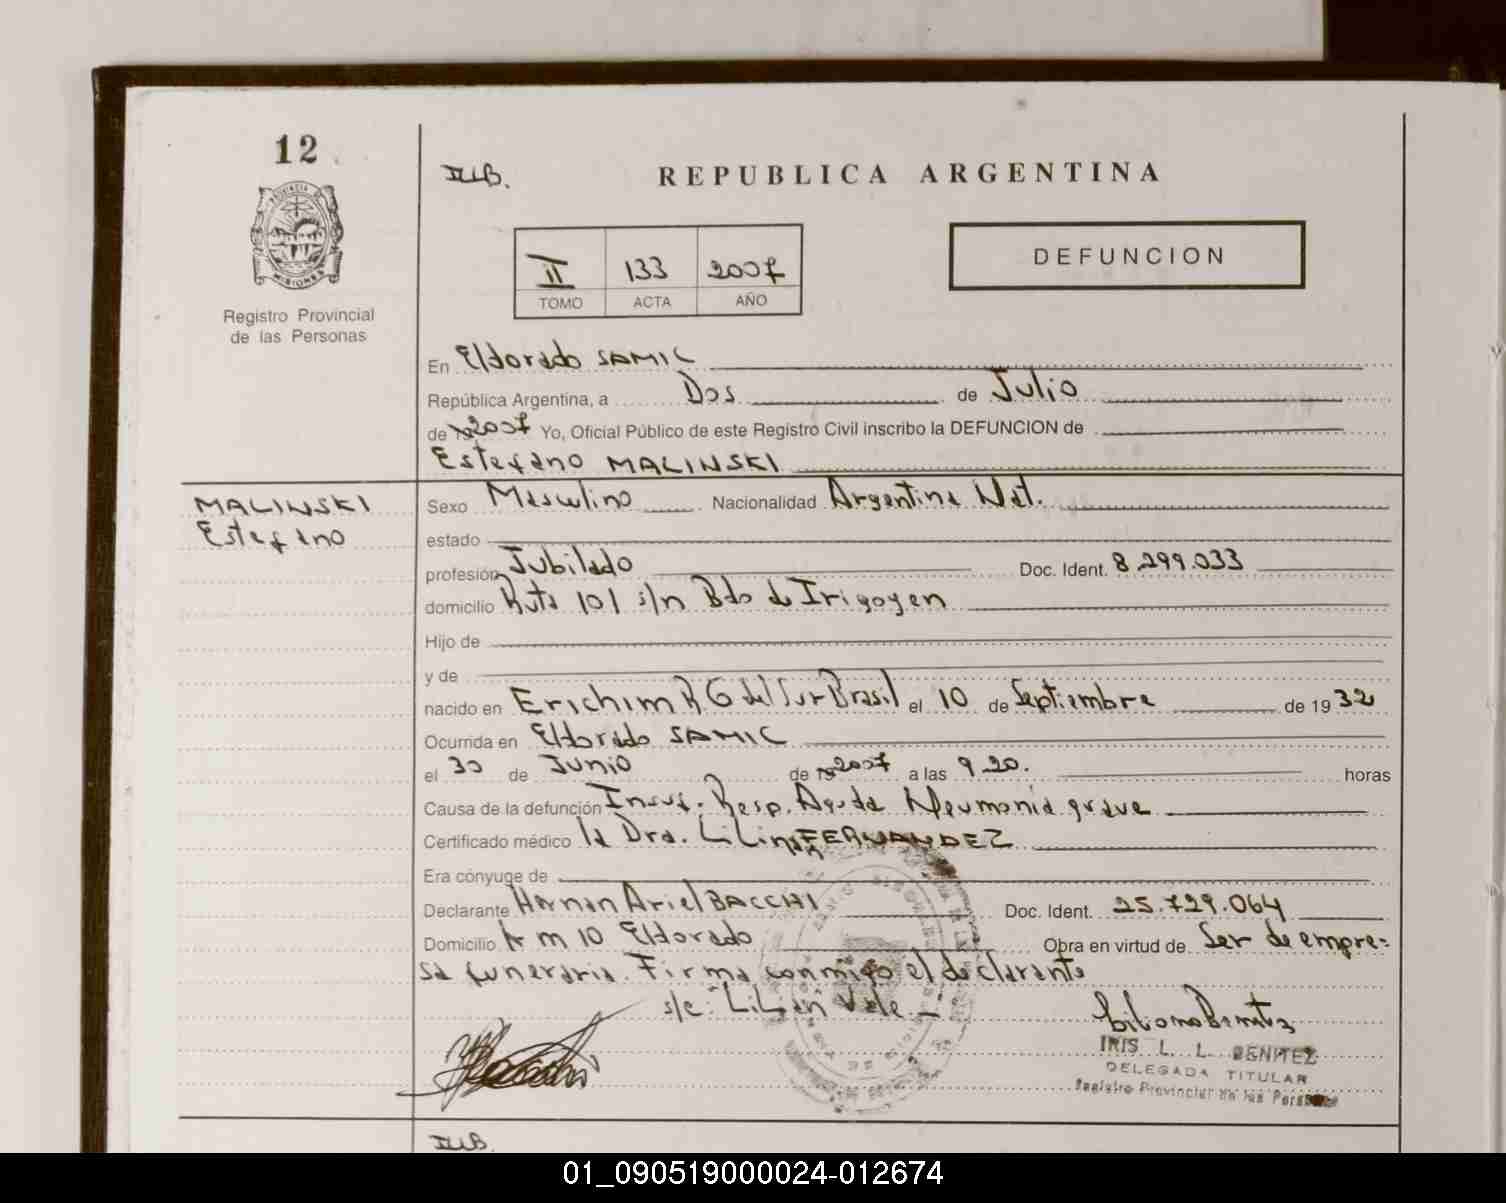 12
REPUBLICA ARGENTINA
PROVINCIA DE
MISIONES
Registro Provincial
de las Personas
II 133 2007
TOMO ACTA AÑO
DEFUNCION
En Eldorado SAMIC
República Argentina, a Dos de Julio
de 2007 Yo, Oficial Público de este Registro Civil inscribo la DEFUNCION de
Estefano MALINSKI
MALINSKI
Estefano
Sexo Masculino Nacionalidad Argentina Nat.
estado
profesión Jubilado Doc. Ident. 8.299.033
domicilio Ruta 101 s/n Bdo de Irigoyen
Hijo de
y de
nacido en Erichim R G del Sur Brasil el 10 de Septiembre de 1932
Ocurrida en Eldorado SAMIC
el 30 de Junio de 2007 a las 9 20. horas
Causa de la defunción Insuf. Resp. Aguda Neumonia grave
Certificado médico la Dra. Lilian FERNANDEZ
Era cónyuge de
Declarante Hernan Ariel BACCHI Doc. Ident. 25.729.064
Domicilio Km 10 Eldorado Obra en virtud de Ser de empre=
sa funeraria. Firma conmigo el declarante
s/c: "Lilian" Vale
IRIS L. L. BENITEZ
DELEGADA TITULAR
Registro Provincial de las Personas
01_090519000024-012674